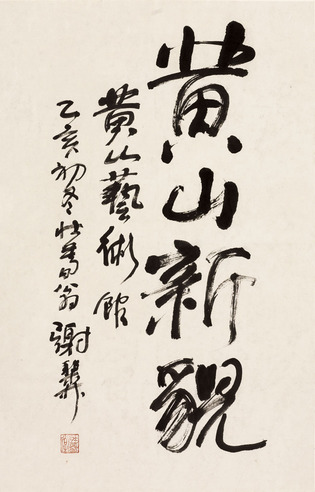 黄山新貌
黄山藝術館
乙亥初冬壯暮翁謝穉